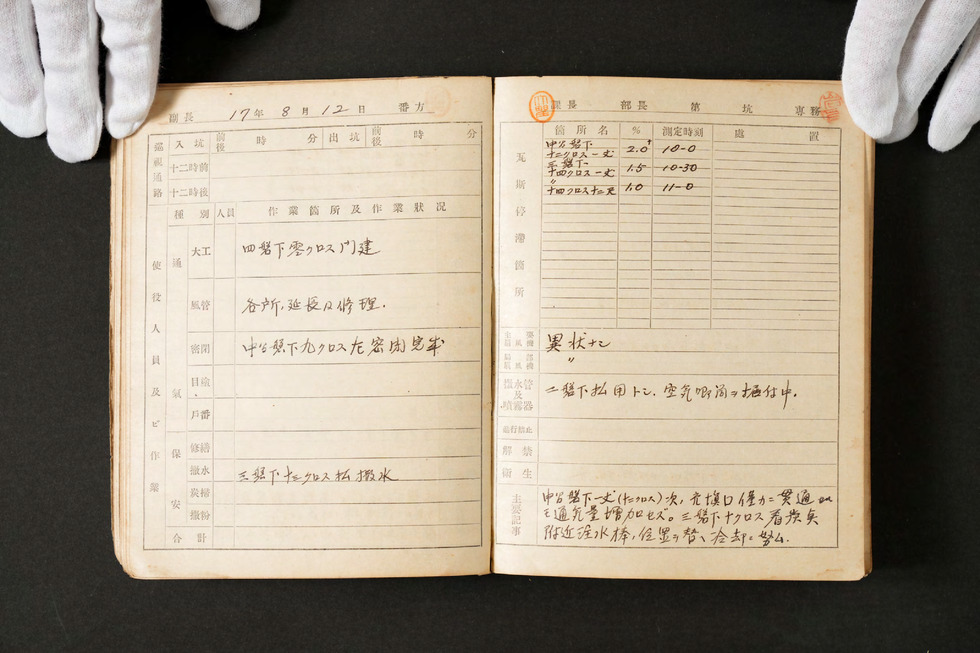 副長 17年 8月 12日 番方
巡視通路 入坑 前後 時 分 出坑 前後 時 分
十二時前
十二時後
使役人員及ビ作業
種別 人員 作業箇所及作業狀况
通氣
大工 四盤下零クロス門建
風管 各所、延長及修理.
密閉 中台盤下九クロス左密閉完半
目塗
戶番
保安
修繕
撒水 三盤下十三クロス払撒水
炭掃
撒粉
合計
課長 部長 第 坑 専務
瓦斯停滯箇所
箇所名 % 測定時刻 處置
中台盤下
十三クロス一丈 2.0 10-0
三盤下
十四クロス一丈 1.5 10-30
〃
十四クロス十二尺 1.0 11-0
主要扇風機 異狀ナシ
局部扇風機 〃
撒水管及噴霧器 二盤下払用トシ、空気喞筒ヲ据付中.
進行禁止
解禁
衞生
主要記事
中台盤下一丈(十三クロス)次、充填口僅カニ貫通
モ通気量增加セズ。三盤下十クロス
附近注水棒、位置ヲ替ヘ冷却ニ努ム.